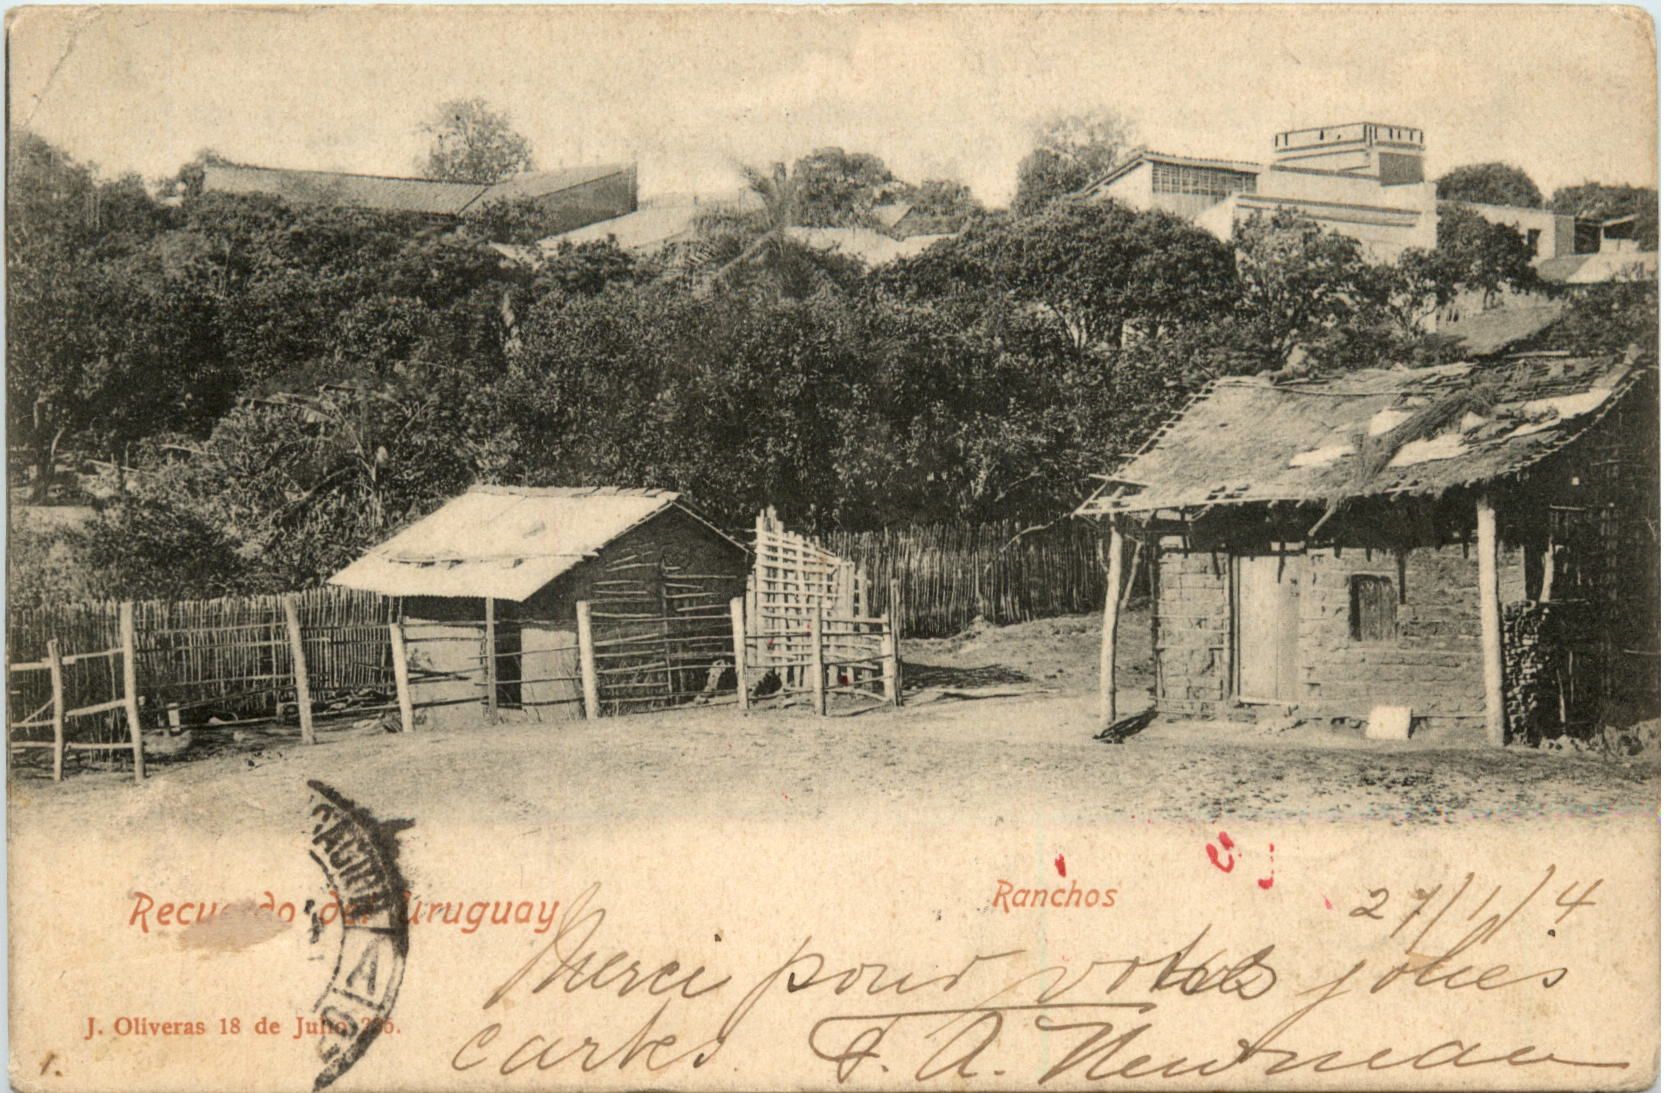 Recuerdo del Uruguay
Ranchos
27/1/4
Merci pour votre jolies
cartes. F. A. Newman
J. Oliveras 18 de Julio
1.